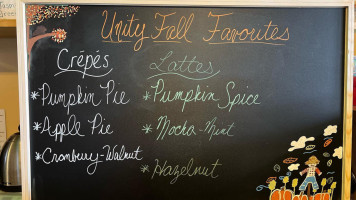 Unity Fall Favorites
Crêpés
*Pumpkin Pie
*Apple Pie
*Cranbury-Walnut
Lattes
*Pumpkin Spice
*Mocha-Mint
*Hazelnut